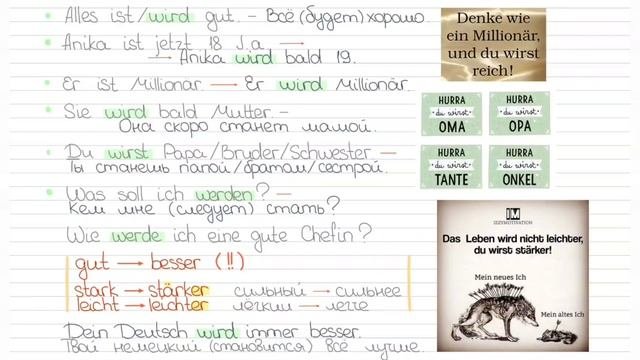 • Alles ist/wird gut. – Всё (будет) хорошо.
• Anika ist jetzt 18 J.a. →
→ Anika wird bald 19.
• Er ist Millionär → Er wird Millionär.
• Sie wird bald Mutter. –
Она скоро станет мамой.
• Du wirst Papa/Bruder/Schwester –
Ты станешь папой/братом/сестрой.
• Was soll ich werden? –
Кем мне (следует) стать?
Wie werde ich eine gute Chefin?
gut → besser (!!)
stark → stärker сильный → сильнее
leicht → leichter лёгкий → легче
Dein Deutsch wird immer besser.
Твой немецкий (становится) всё лучше.
Denke wie
ein Millionär,
und du wirst
reich!
HURRA
du wirst
OMA
HURRA
du wirst
OPA
HURRA
du wirst
TANTE
HURRA
du wirst
ONKEL
IM
IZZYMOTIVATION
Das Leben wird nicht leichter,
du wirst stärker!
Mein neues Ich
Mein altes Ich